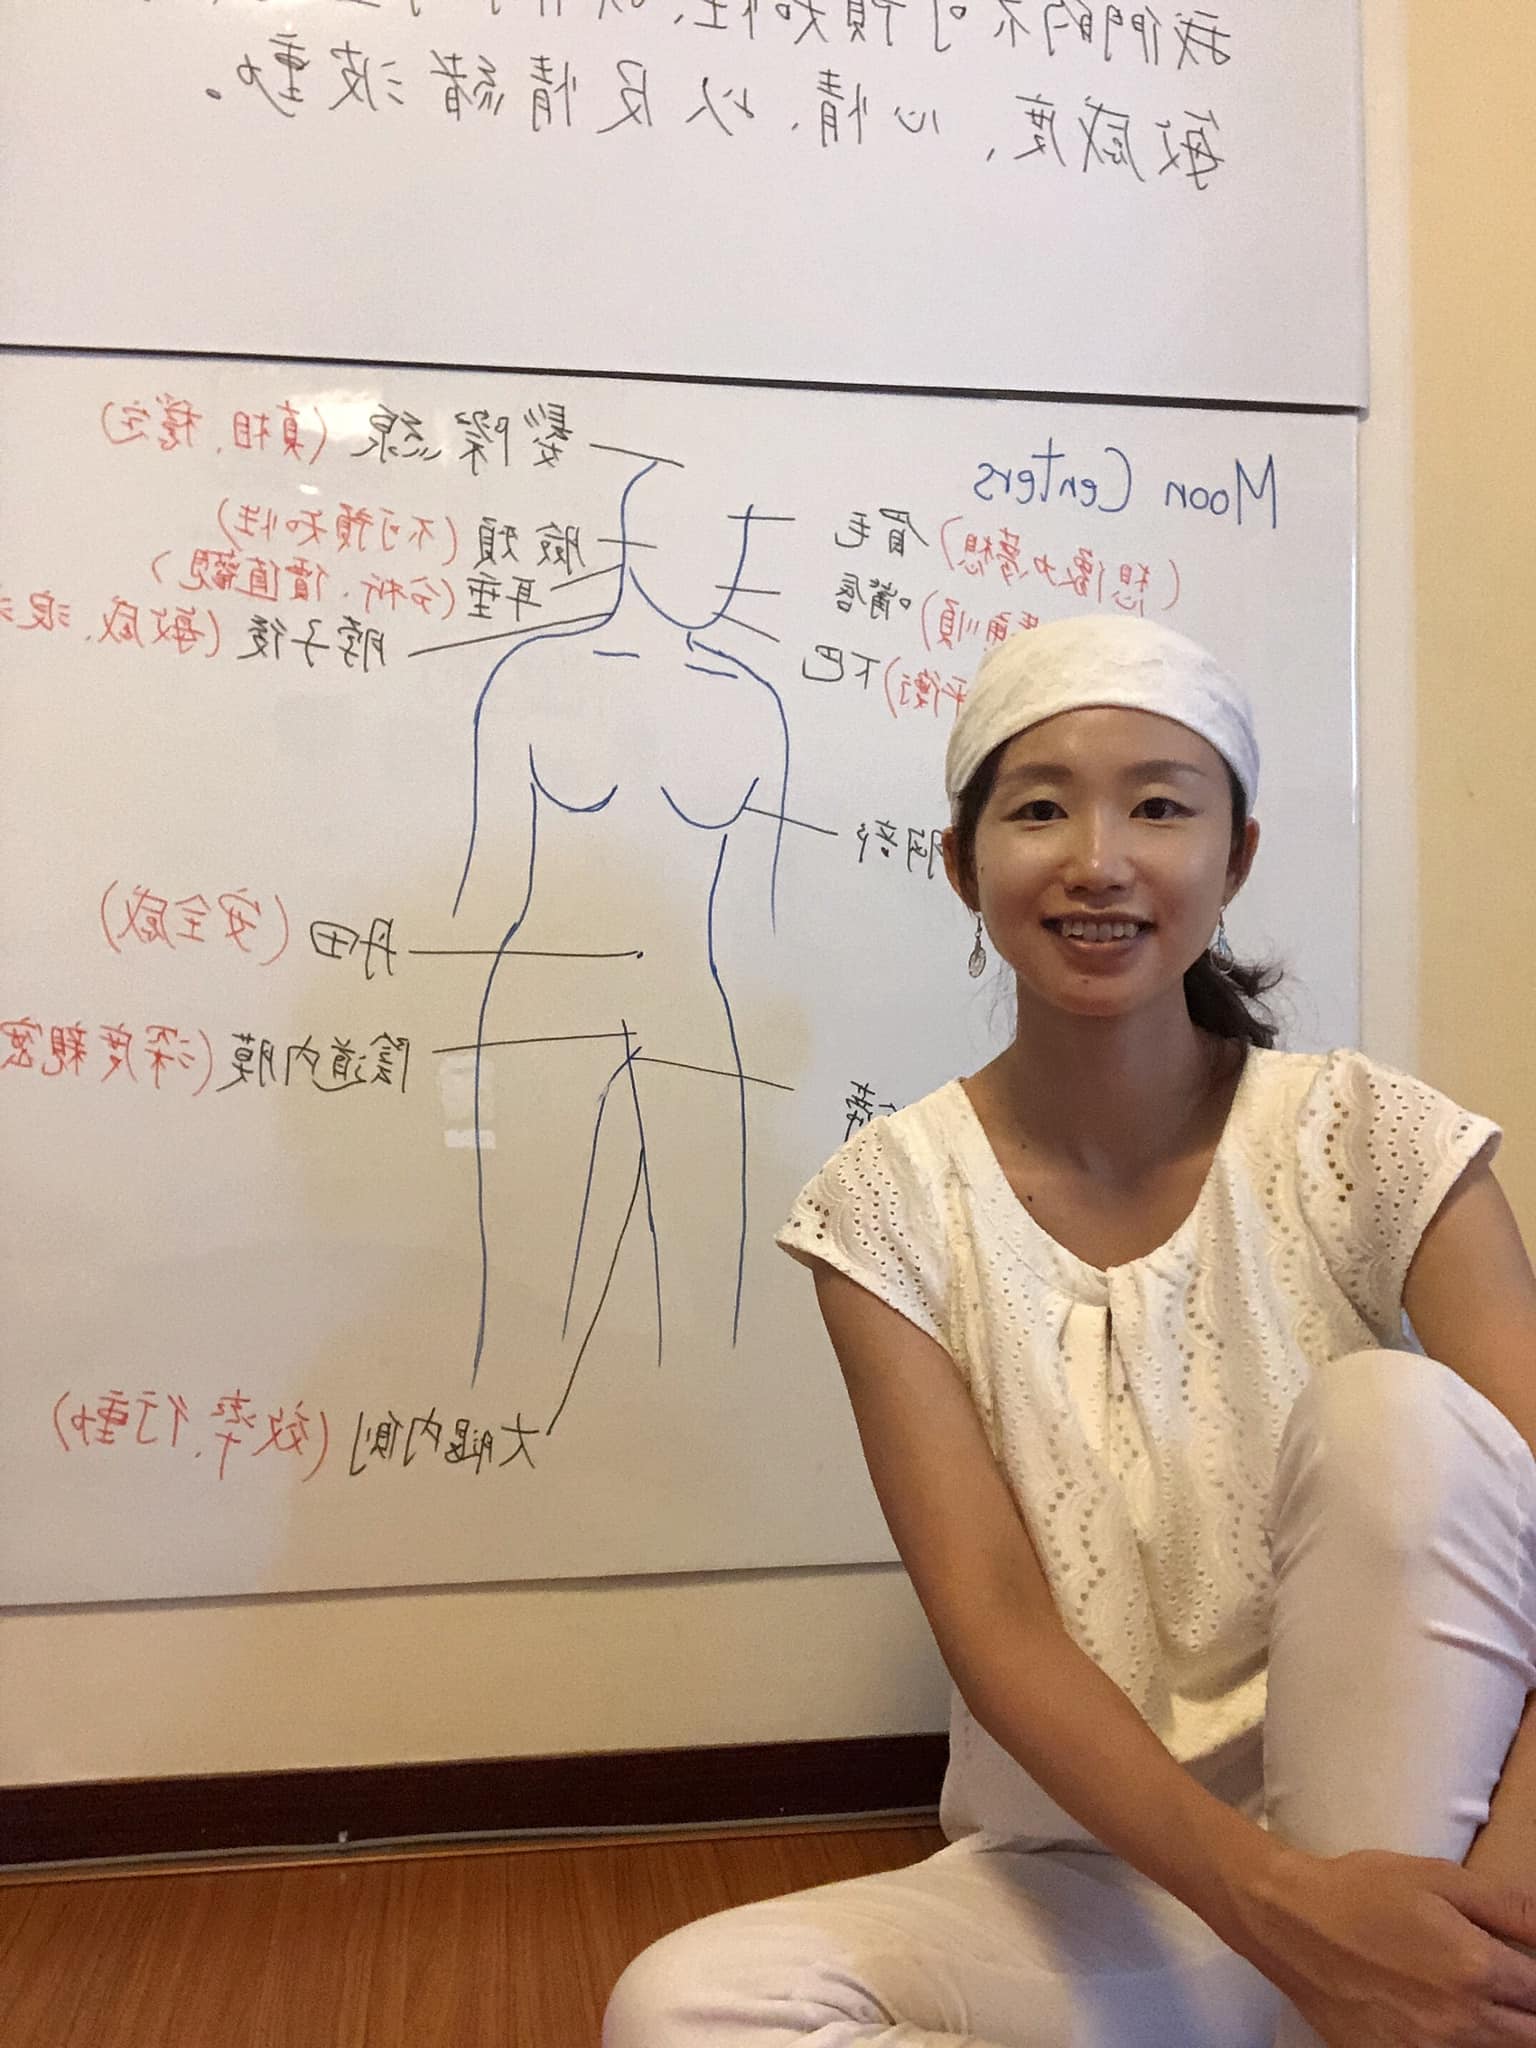 我們的不可預知性、以
敏感度、心情、以及情緒波動。
Moon Centers
髮際線 (真相、穩定)
(想像力夢想) 眉毛
臉頰 (不可預知性)
嘴唇
耳垂 (分析、價值觀)
平衡) 下巴
脖子後 (敏感、浪
胸部
丹田 (安全感)
陰道內膜 (深度親密
大腿內側 (效率、行動)